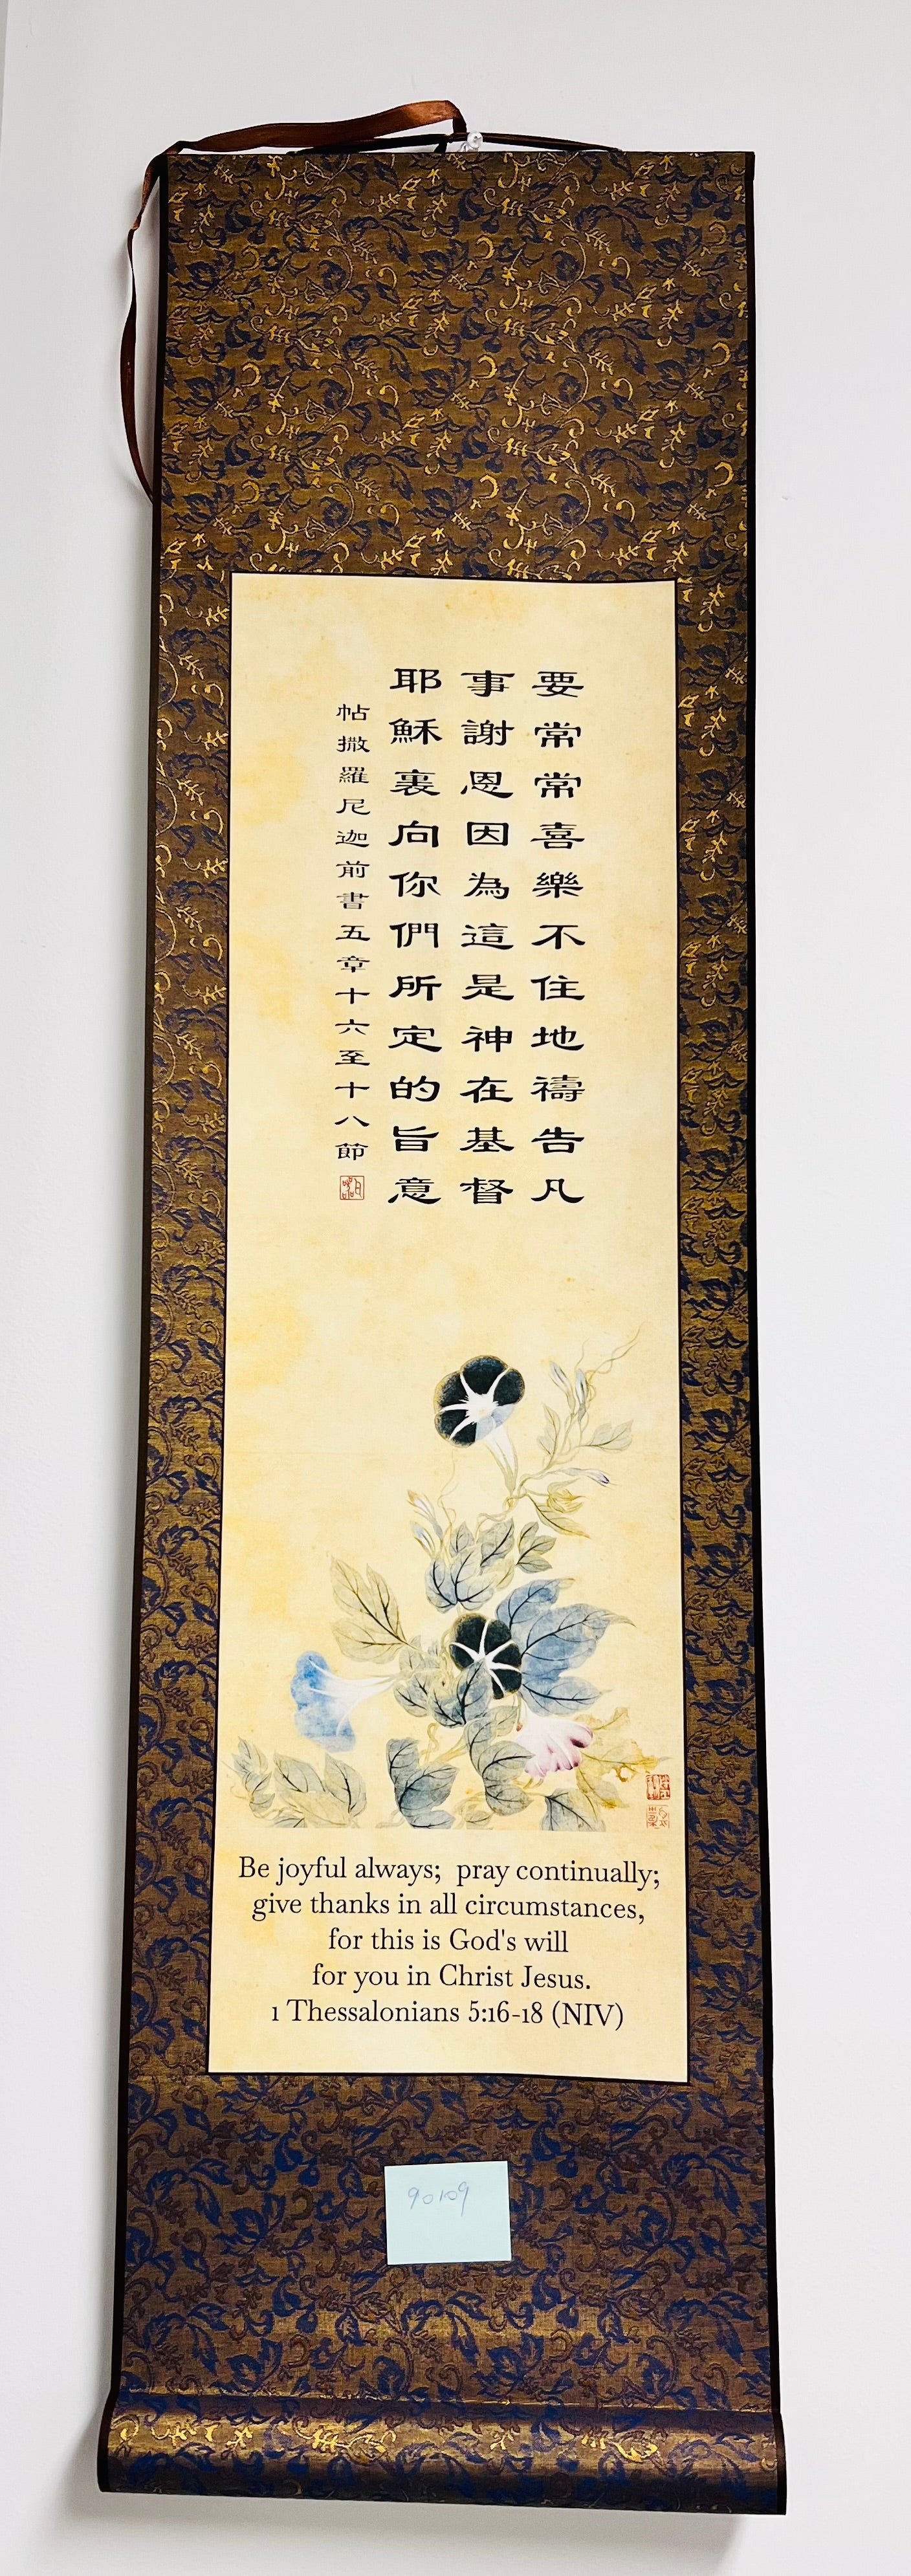 要常常喜樂不住地禱告凡
事謝恩因為這是神在基督
耶穌裏向你們所定的旨意
帖撒羅尼迦前書五章十六至十八節
Be joyful always; pray continually;
give thanks in all circumstances,
for this is God's will
for you in Christ Jesus.
1 Thessalonians 5:16-18 (NIV)
90109